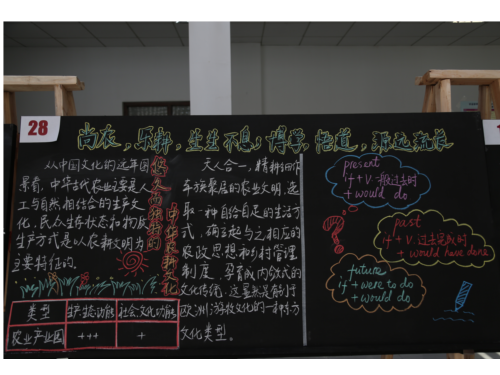 28
尚农,乐耕,生生不息,博学,悟道,源远流长
从中国文化的远年图
景看,中华古代农业主要是人
工与自然相结合的生产文
化,民众生存状态和物质
生产方式是以农耕文明为
主要特征的。
中华农耕文化
类型 生产生态功能 社会文化功能
农业产业园 +++ +
天人合一,精耕细作
车族聚居的农业文明,选
取一种自给自足的生活方
式,确立起与之相应的
农政思想和乡村管理
制度,孕育成内敛式的
文化传统,这显然是有别于
欧洲游牧文化的一种东方
文化类型。
present
if + V 一般过去时
+ would do
past
if + V. 过去完成时
+ would have done
future
if + were to do
+ would do